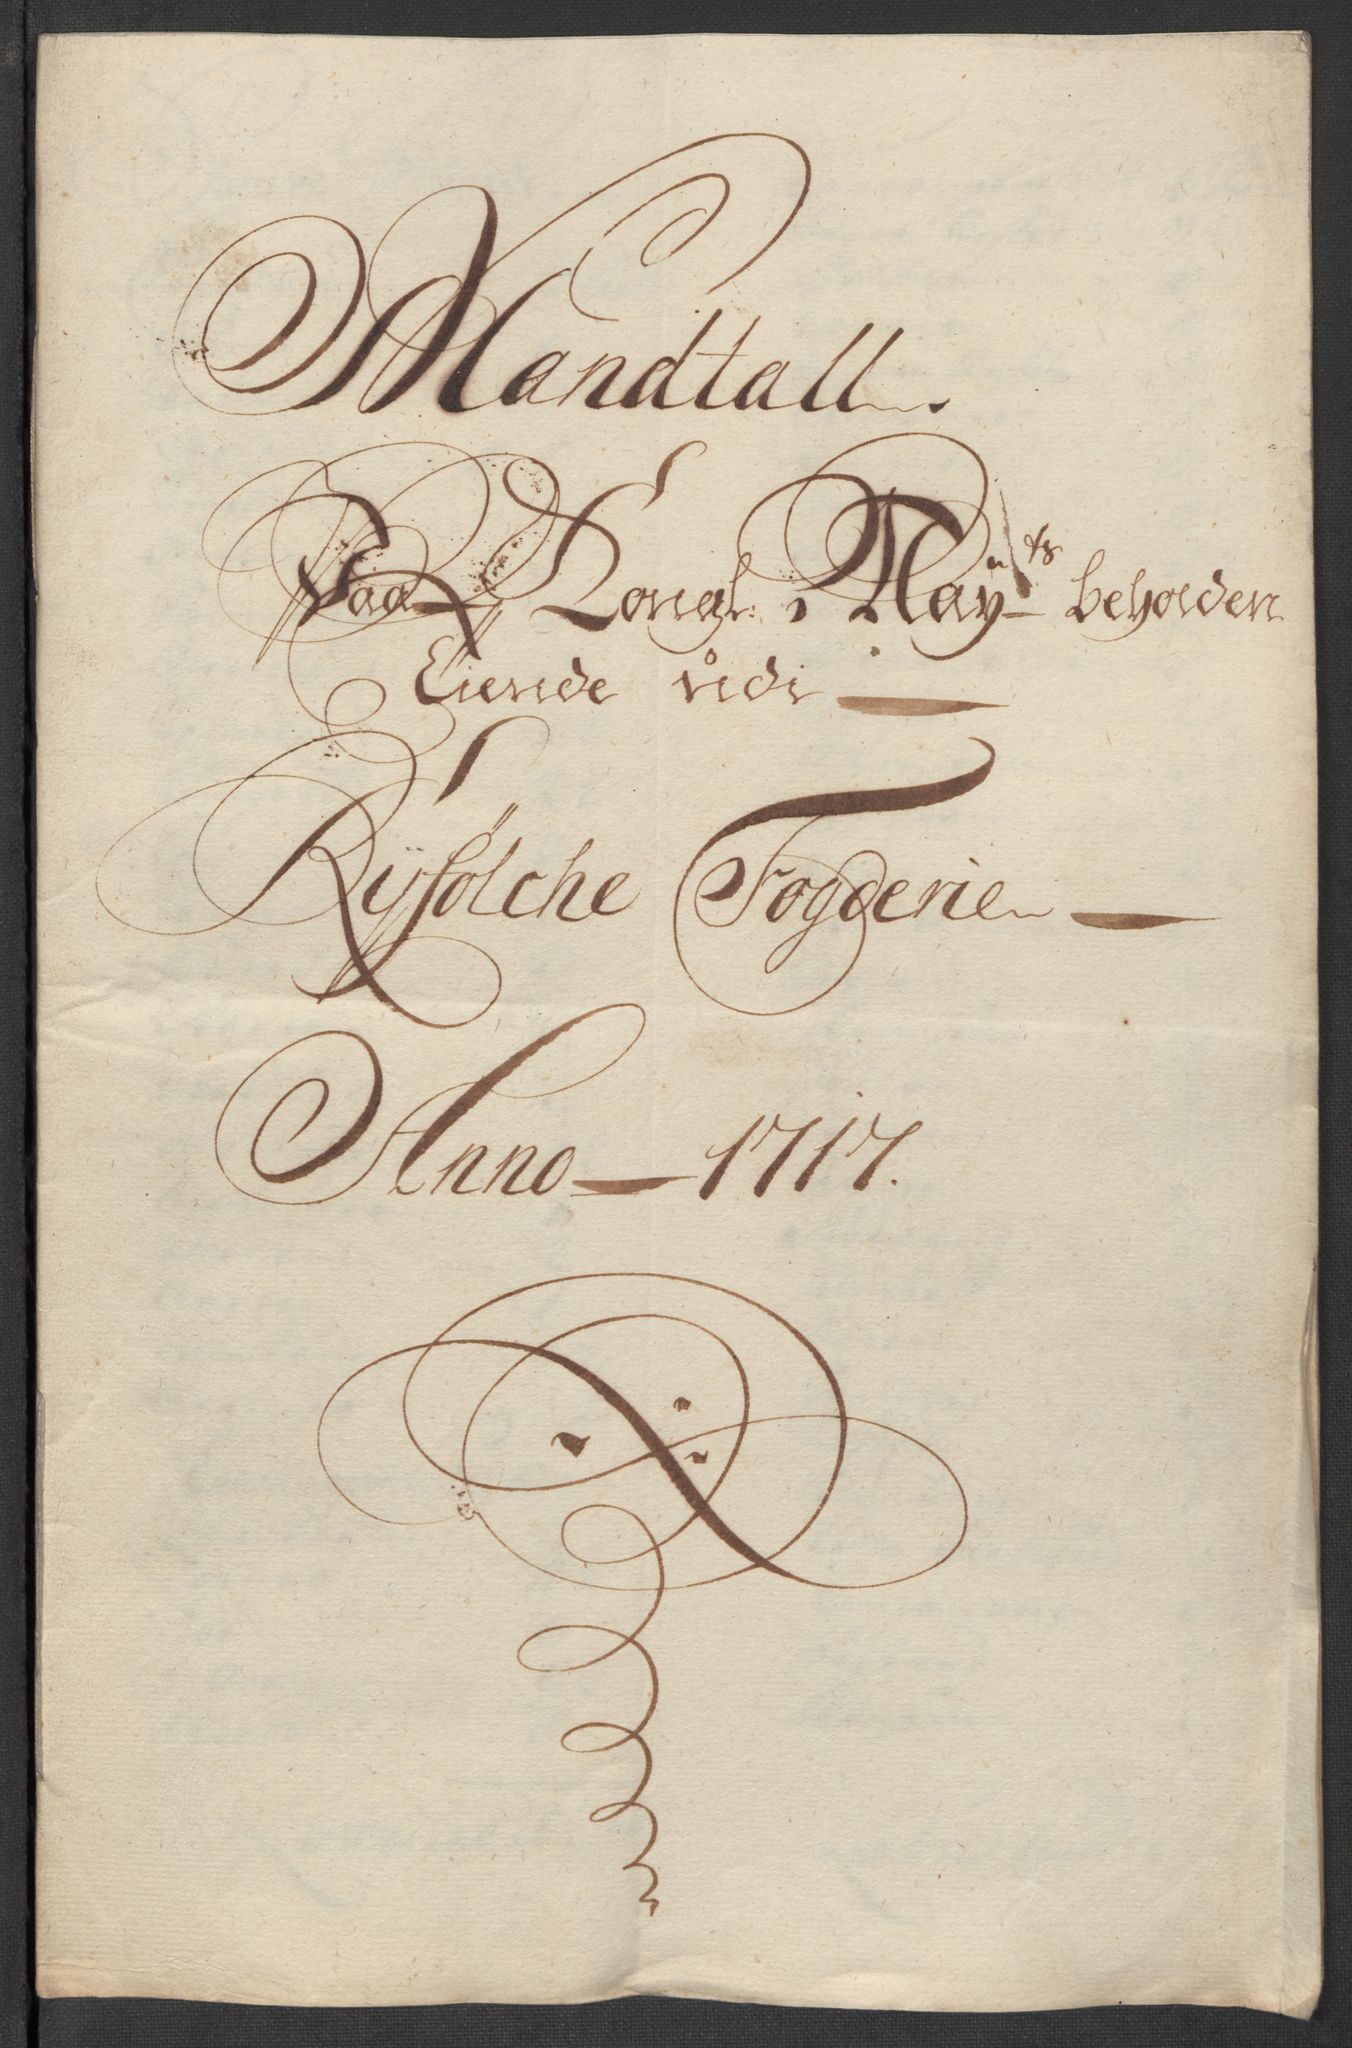 Mandtall.
Paa Kongl: Mayts beholden
Tiende udi
Ryfølche Fogderie
Anno 1717.